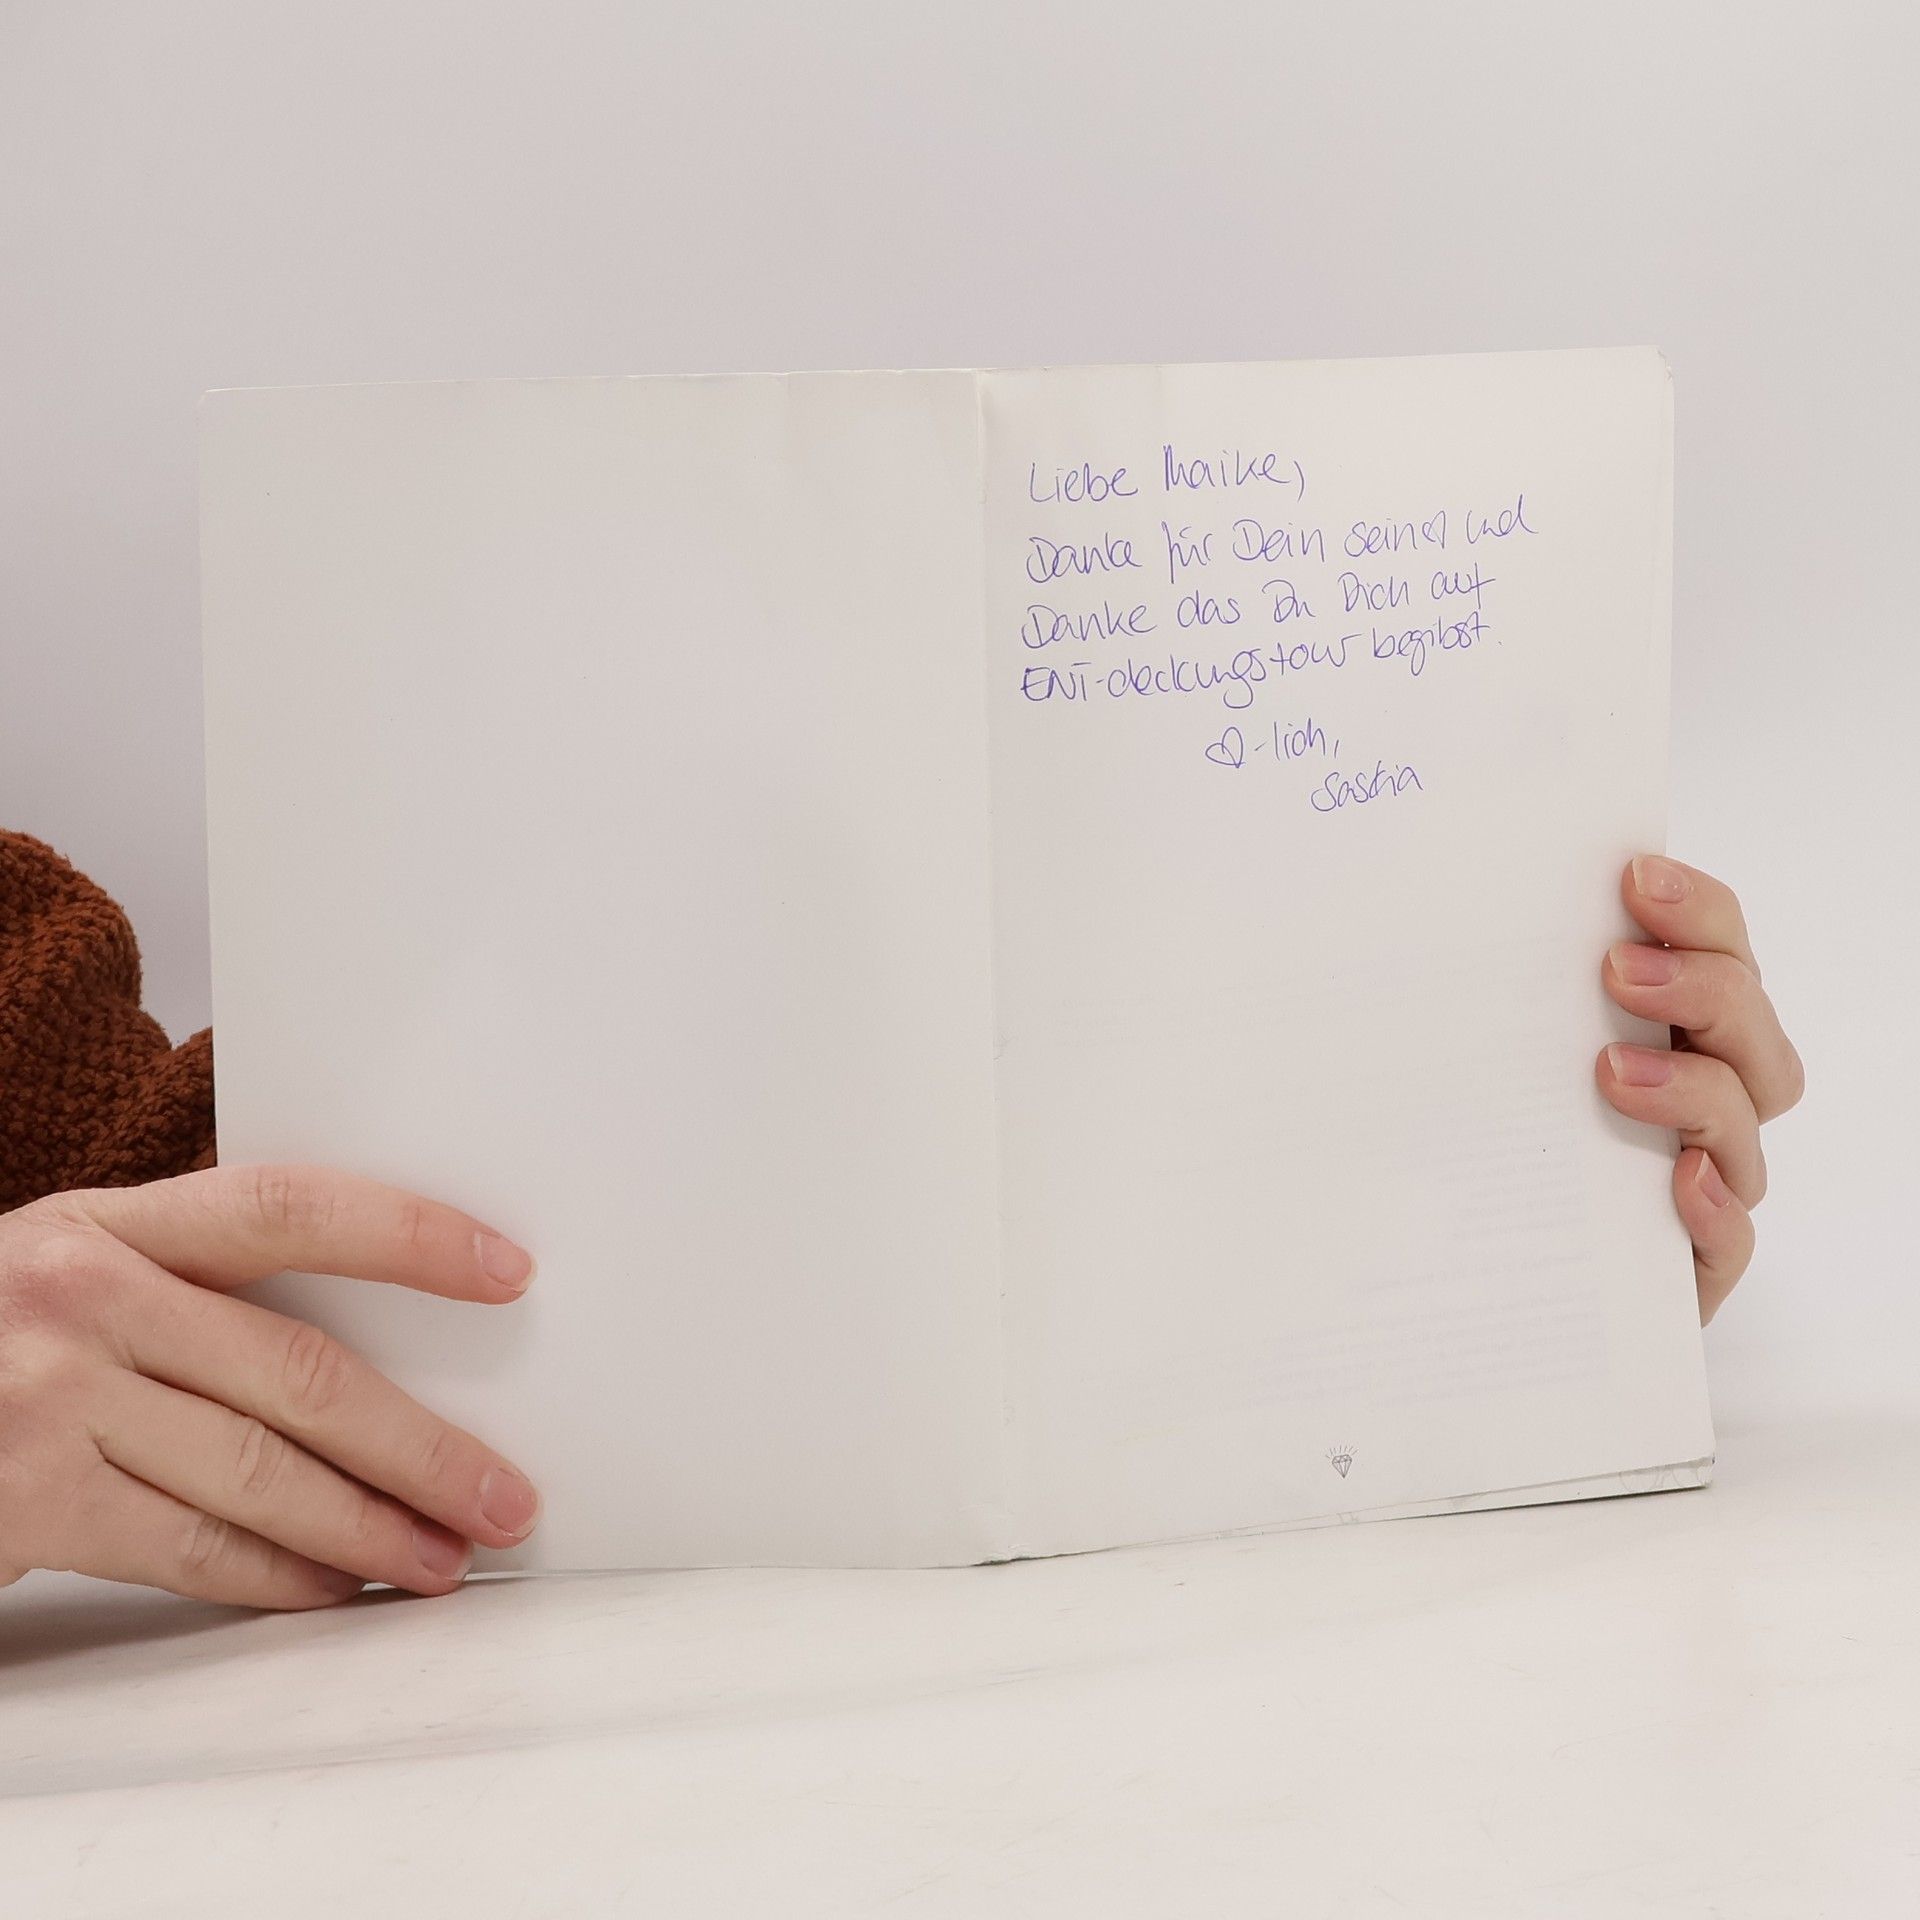 Liebe Maike,
Danke für Dein sein♡ und
Danke das Du Dich auf
ENT-deckungstour begibst.
♡-lich,
Saskia